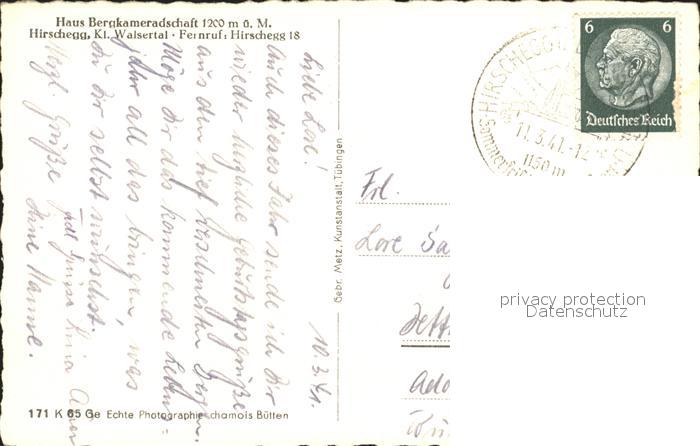 Haus Bergkameradschaft 1200 m ü. M.
Hirschegg, Kl. Walsertal · Fernruf: Hirschegg 18
10.3.41.
Liebe Lore!
Auch dieses Jahr sende ich Dir
wieder herzliche Geburtstagsgrüße
aus den tief verschneiten Bergen.
Möge Dir das kommende Lebens-
jahr all das bringen, was
Du Dir selbst wünschst.
Herzl. Grüße
Deine Hanne.
Gebr. Metz, Kunstanstalt, Tübingen
171 K 65 Ge Echte Photographie chamois Bütten
HIRSCHEGG
11.3.41.-12
1150 m
Sommerfri
6 6
Deutsches Reich
Frl.
Lore Sa
privacy protection
Datenschutz